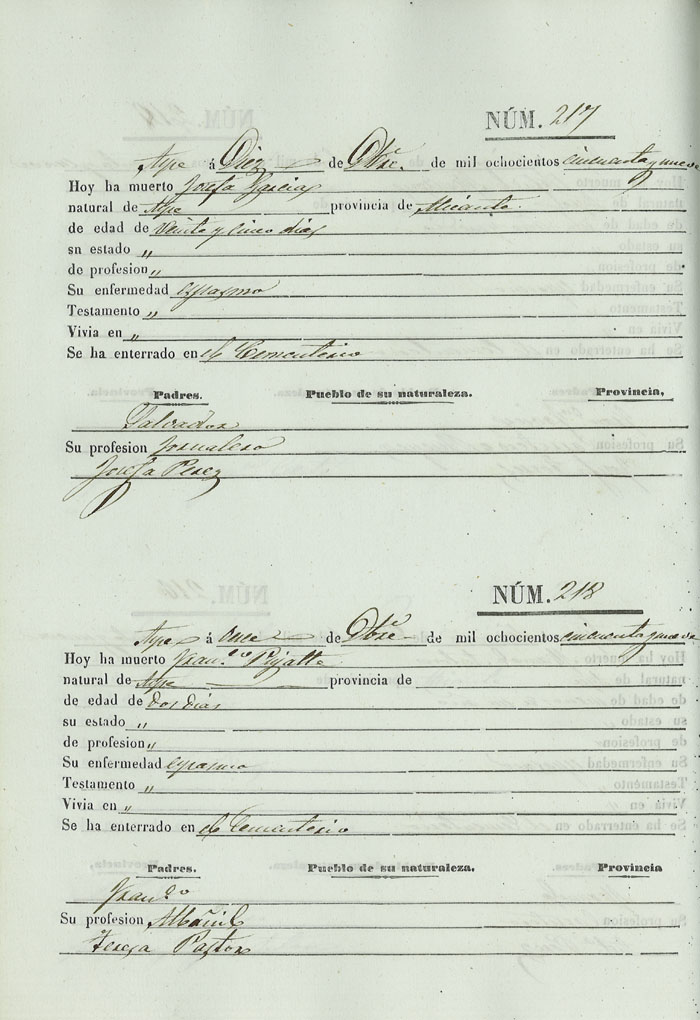 NÚM. 217
Aspe á Diez de Dbre. de mil ochocientos cincuenta y nueve
Hoy ha muerto Josefa Garcia
natural de Aspe provincia de Alicante.
de edad de veinte y cinco dias
sn estado „
de profesion „
Su enfermedad espasmo
Testamento „
Vivia en „
Se ha enterrado en el Cementerio
Padres. Pueblo de su naturaleza. Provincia,
Salvador
Su profesion Jornalero
Josefa Perez
NÚM. 218
Aspe á once de Dbre de mil ochocientos cincuenta y nueve
Hoy ha muerto Fran.co
natural de Aspe provincia de
de edad de dos dias
su estado „
de profesion „
Su enfermedad espasmo
Testamento „
Vivia en „
Se ha enterrado en el Cementerio
Padres. Pueblo de su naturaleza. Provincia
Fran.co
Su profesion Albañil
Teresa Pastor